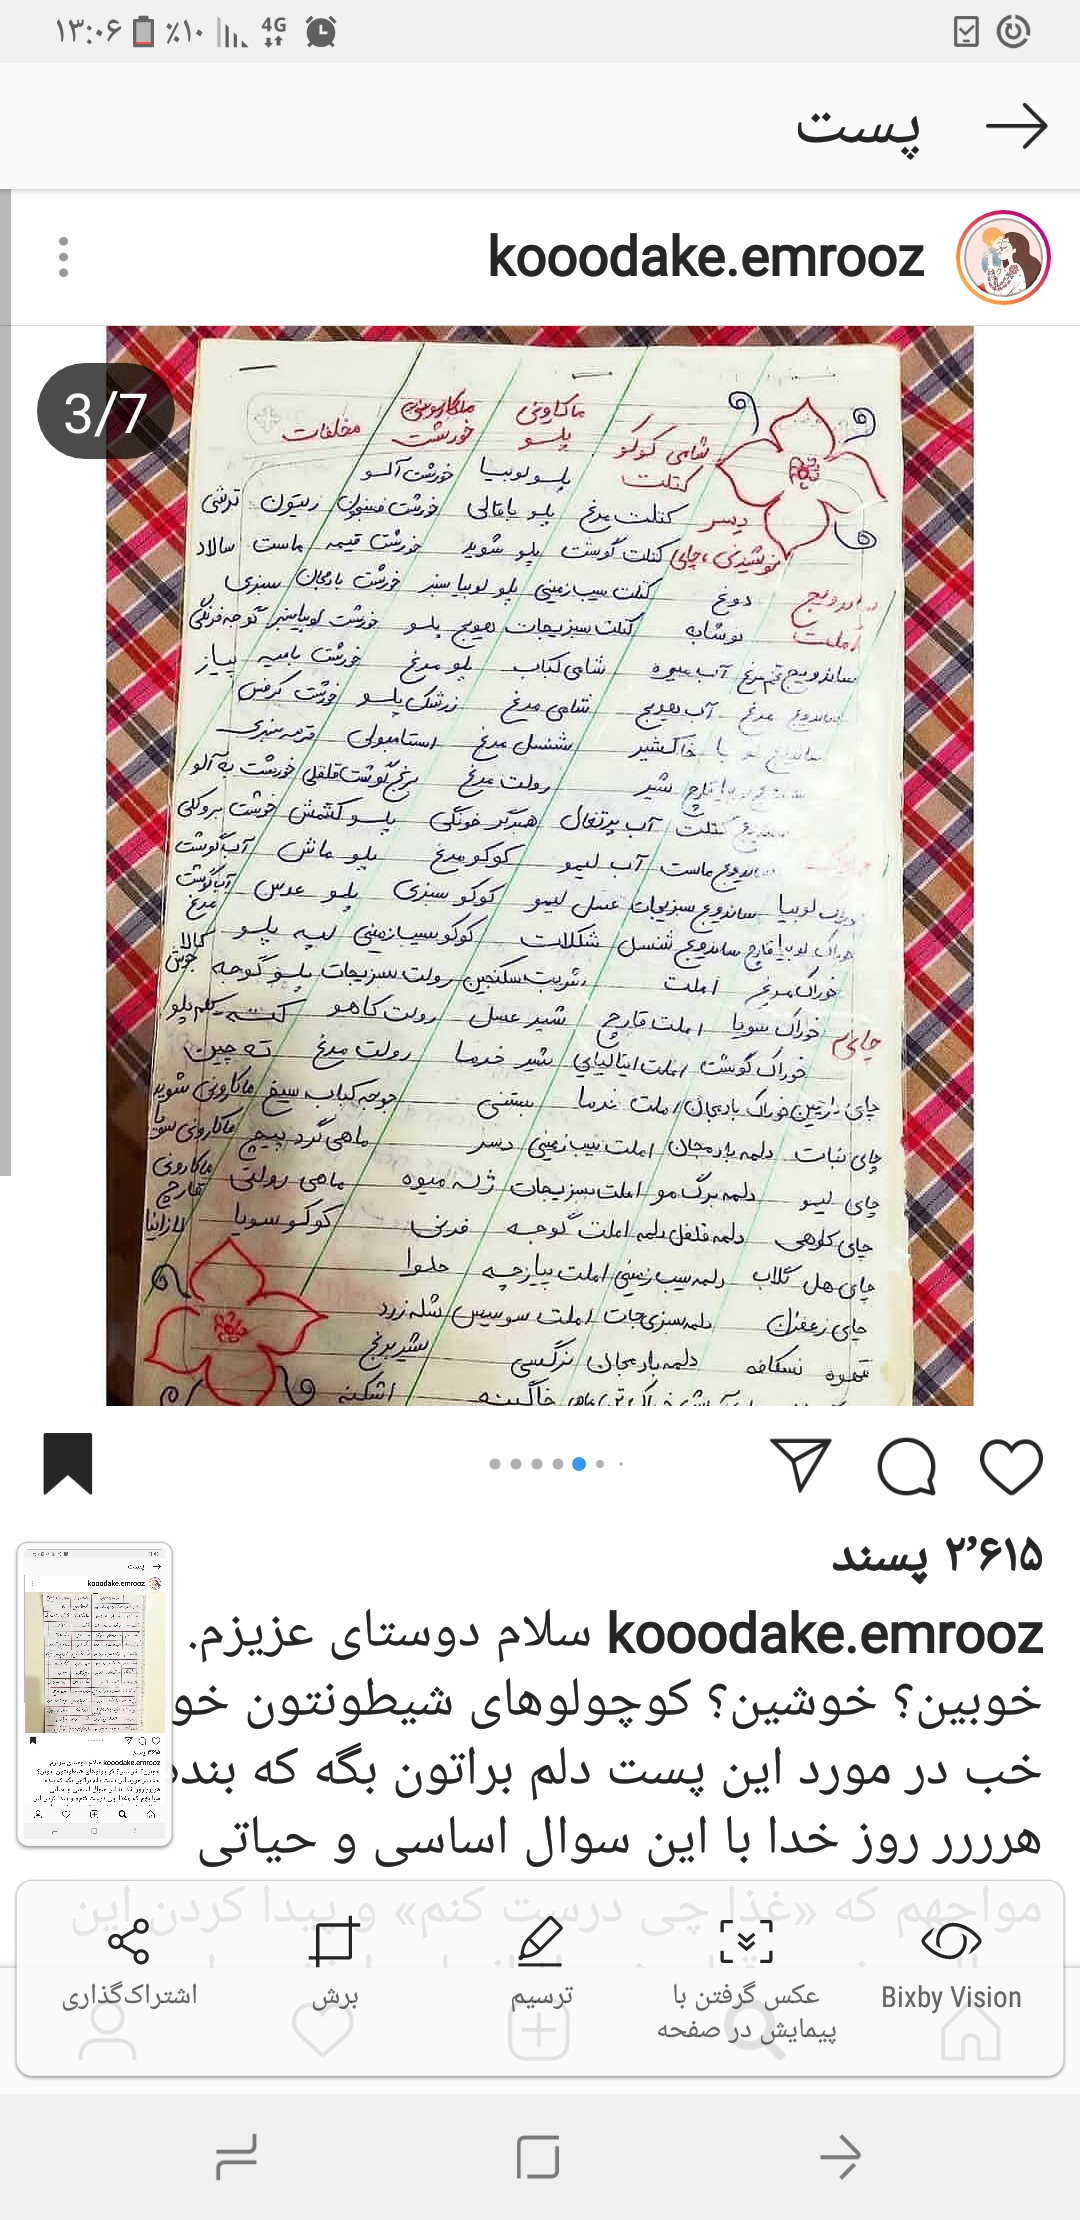 ۱۳:۰۶ ٪۱۰ 4G
پست
kooodake.emrooz
3/7
شامی کوکو کتلت
ماکارونی پلو
ماکارونی خورشت
مخلفات
پلو لوبیا خورشت آلو
دسر کتلت مرغ پلو باقالی خورشت فسنجان زیتون ترشی
نوشیدنی، چای کتلت گوشت پلو شوید خورشت قیمه ماست سالاد
ساندویچ دوغ کتلت سیب‌زمینی پلو لوبیا سبز خورشت بادمجان سبزی
املت نوشابه کتلت سبزیجات هویج پلو خورشت لوبیا سبز گوجه‌فرنگی
ساندویچ تخم مرغ آب میوه شامی کباب پلو مرغ خورشت بامیه پیاز
ساندویچ مرغ آب هویج شامی مرغ زرشک پلو خورشت کرفس
خاکشیر شنسل مرغ استامبولی قرمه سبزی
قارچ شیر رولت مرغ برنج گوشت قلقلی خورشت به آلو
کتلت آب پرتغال همبرگر خونگی پلو کشمش خورشت بروکلی
ساندویچ ماست آب لیمو کوکو مرغ پلو ماش آب گوشت
خوراک لوبیا ساندویچ سبزیجات عسل لیمو کوکو سبزی پلو عدس آب گوشت مرغ
خوراک لوبیا قارچ ساندویچ شنسل شکلات کوکو سیب‌زمینی لپه پلو کالا جوش
خوراک مرغ املت شربت سکنجبین رولت سبزیجات پلو گوجه
چای خوراک سویا املت قارچ شیر عسل رولت کاهو کته کلم پلو
خوراک گوشت املت ایتالیایی شیر خرما رولت مرغ ته چین
چای دارچین خوراک بادمجان املت خرما بستنی جوجه کباب سیخ ماکارونی شوید
چای نبات دلمه بادمجان املت سیب زمینی دسر ماهی گرد پیچ ماکارونی سویا
چای لیمو دلمه برگ مو املت سبزیجات ژله میوه ماهی رولتی ماکارونی قارچ
چای کلوهی دلمه فلفل دلمه املت گوجه فرنی کوکو سویا لازانیا
چای هل گلاب دلمه سیب زمینی املت پیازچه حلوا
چای زعفران دلمه سبزی جات املت سوسیس شله زرد
قهوه نسکافه دلمه بادمجان نرگسی شیر برنج
خوراک تن ماهی خاگینه اشکنه
۲٬۶۱۵ پسند
kooodake.emrooz سلام دوستای عزیزم.
خوبین؟ خوشین؟ کوچولوهای شیطونتون خو
خب در مورد این پست دلم براتون بگه که بنده
هرررر روز خدا با این سوال اساسی و حیاتی
مواجهم که «غذا چی درست کنم» و پیدا کردن این
Bixby Vision
عکس گرفتن با پیمایش در صفحه
ترسیم
برش
اشتراک‌گذاری